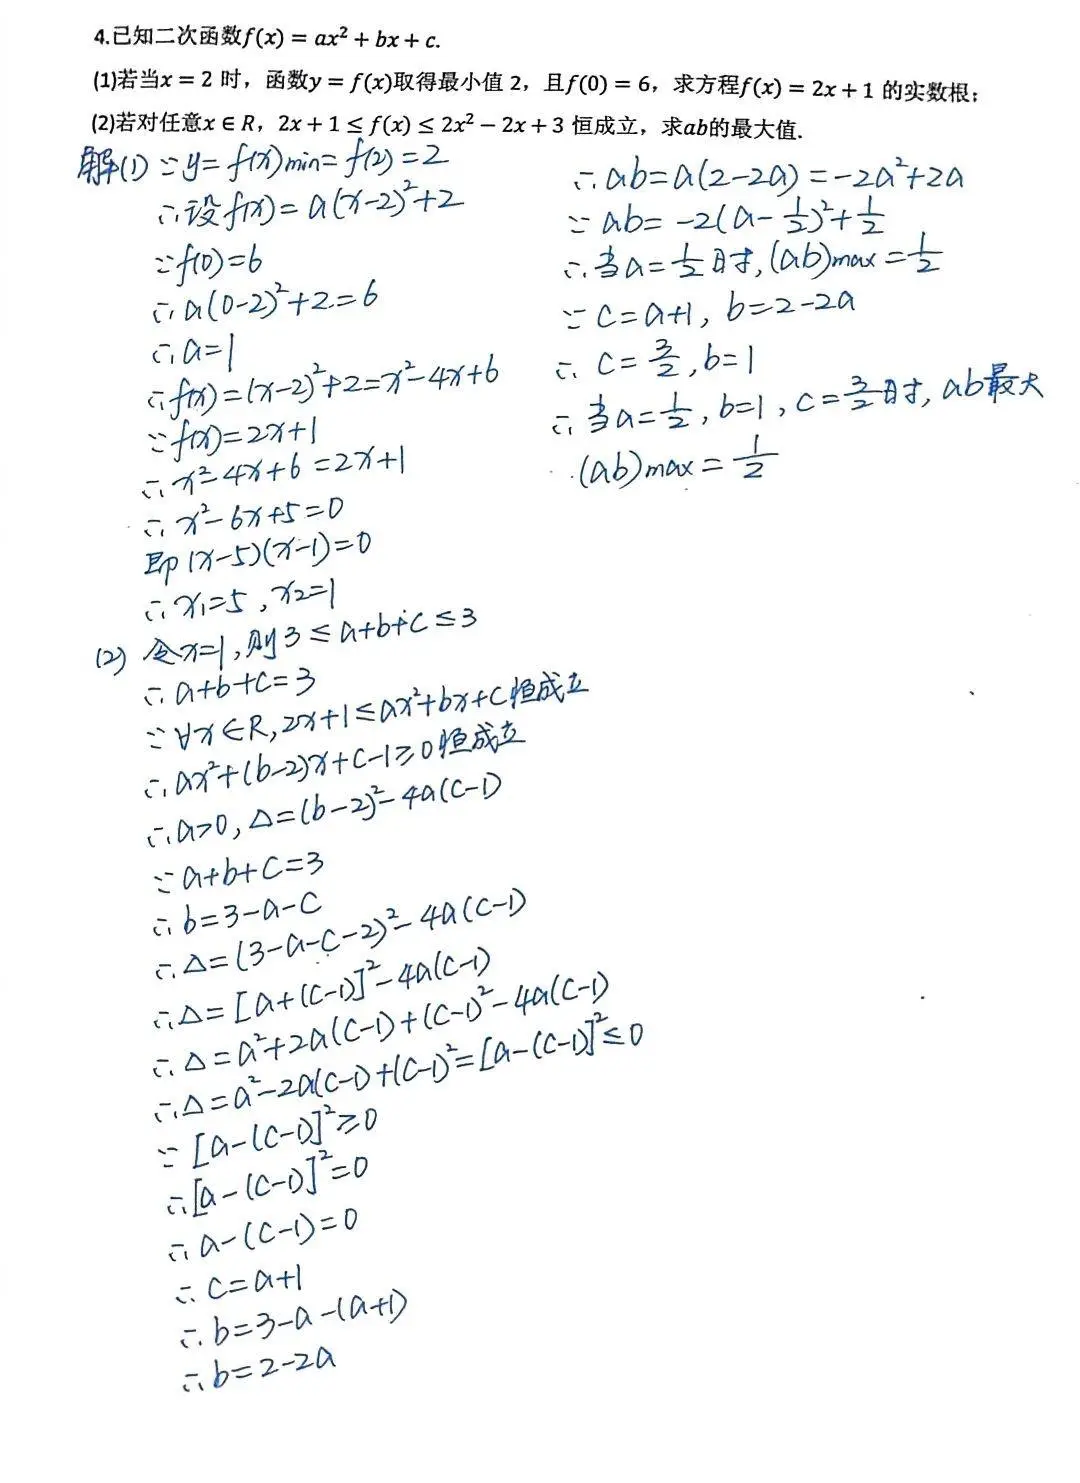 4.已知二次函数f(x) = ax² + bx + c.
(1)若当x = 2 时，函数y = f(x)取得最小值 2，且f(0) = 6，求方程f(x) = 2x + 1 的实数根；
(2)若对任意x ∈ R，2x + 1 ≤ f(x) ≤ 2x² − 2x + 3 恒成立，求ab的最大值.
解(1) ∵ y= f(x)min= f(2) =2
∴设f(x)= a(x-2)²+2
∵f(0)=6
∴a(0-2)²+2=6
∴a=1
∴f(x)=(x-2)²+2=x²-4x+6
∵f(x)=2x+1
∴x²-4x+6=2x+1
∴x²-6x+5=0
即(x-5)(x-1)=0
∴x₁=5,x₂=1
(2) 令x=1,则3≤a+b+c≤3
∴a+b+c=3
∵∀x∈R,2x+1≤ax²+bx+c恒成立
∴ax²+(b-2)x+c-1≥0恒成立
∴a>0,△=(b-2)²-4a(c-1)
∵a+b+c=3
∴b=3-a-c
∴△=(3-a-c-2)²-4a(c-1)
∴△=[a+(c-1)]²-4a(c-1)
∴△=a²+2a(c-1)+(c-1)²-4a(c-1)
∴△=a²-2a(c-1)+(c-1)²=[a-(c-1)]²≤0
∵[a-(c-1)]²≥0
∴[a-(c-1)]²=0
∴a-(c-1)=0
∴c=a+1
∴b=3-a-(a+1)
∴b=2-2a
∴ab=a(2-2a)=-2a²+2a
∵ab=-2(a-1/2)²+1/2
∴当a=1/2时,(ab)max=1/2
∵c=a+1,b=2-2a
∴c=3/2,b=1
∴当a=1/2,b=1,c=3/2时,ab最大
(ab)max=1/2